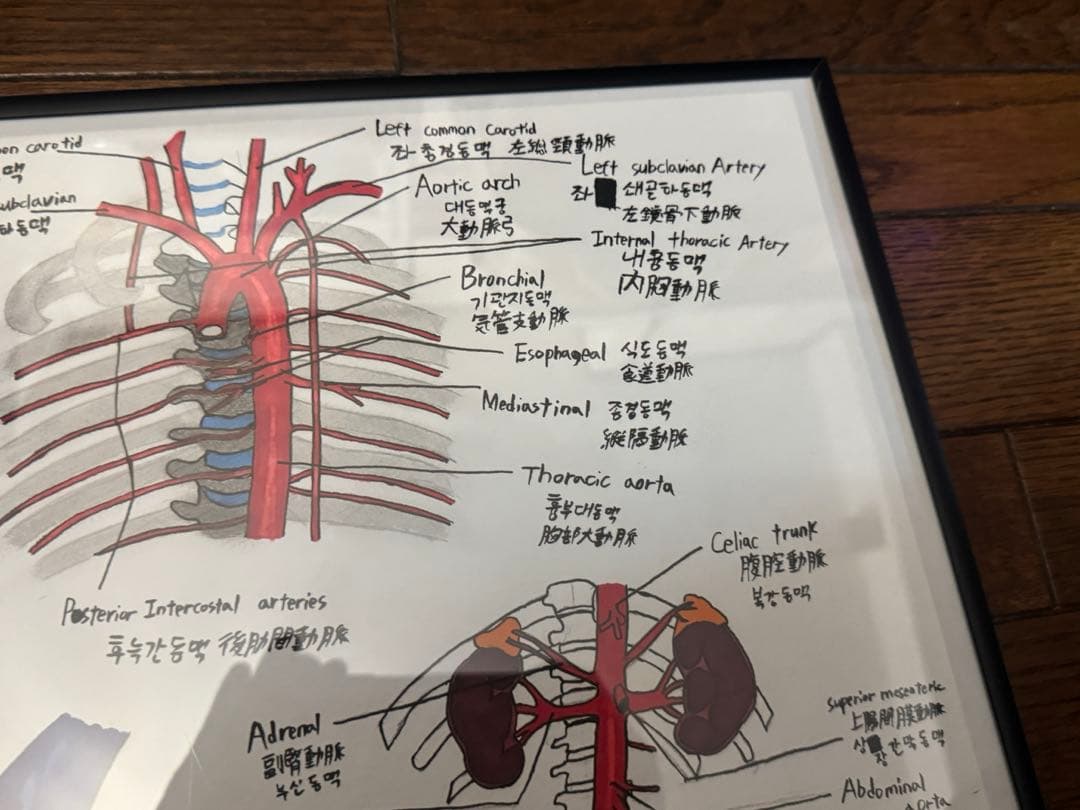 on carotid
맥
Left common carotid
좌총경동맥 左総頚動脈
ubclavian
하동맥
Left subclavian Artery
좌 쇄골하동맥
左鎖骨下動脈
Aortic arch
대동맥궁
大動脈弓
Internal thoracic Artery
내흉동맥
内胸動脈
Bronchial
기관지동맥
気管支動脈
Esophageal 식도동맥
食道動脈
Mediastinal 종경동맥
縦隔動脈
Thoracic aorta
흉부대동맥
胸部大動脈
Posterior Intercostal arteries
후늑간동맥 後肋間動脈
Celiac trunk
腹腔動脈
복강동맥
Adrenal
副腎動脈
부신동맥
superior mesenteric
上腸間膜動脈
상 장간막동맥
Abdominal
aorta